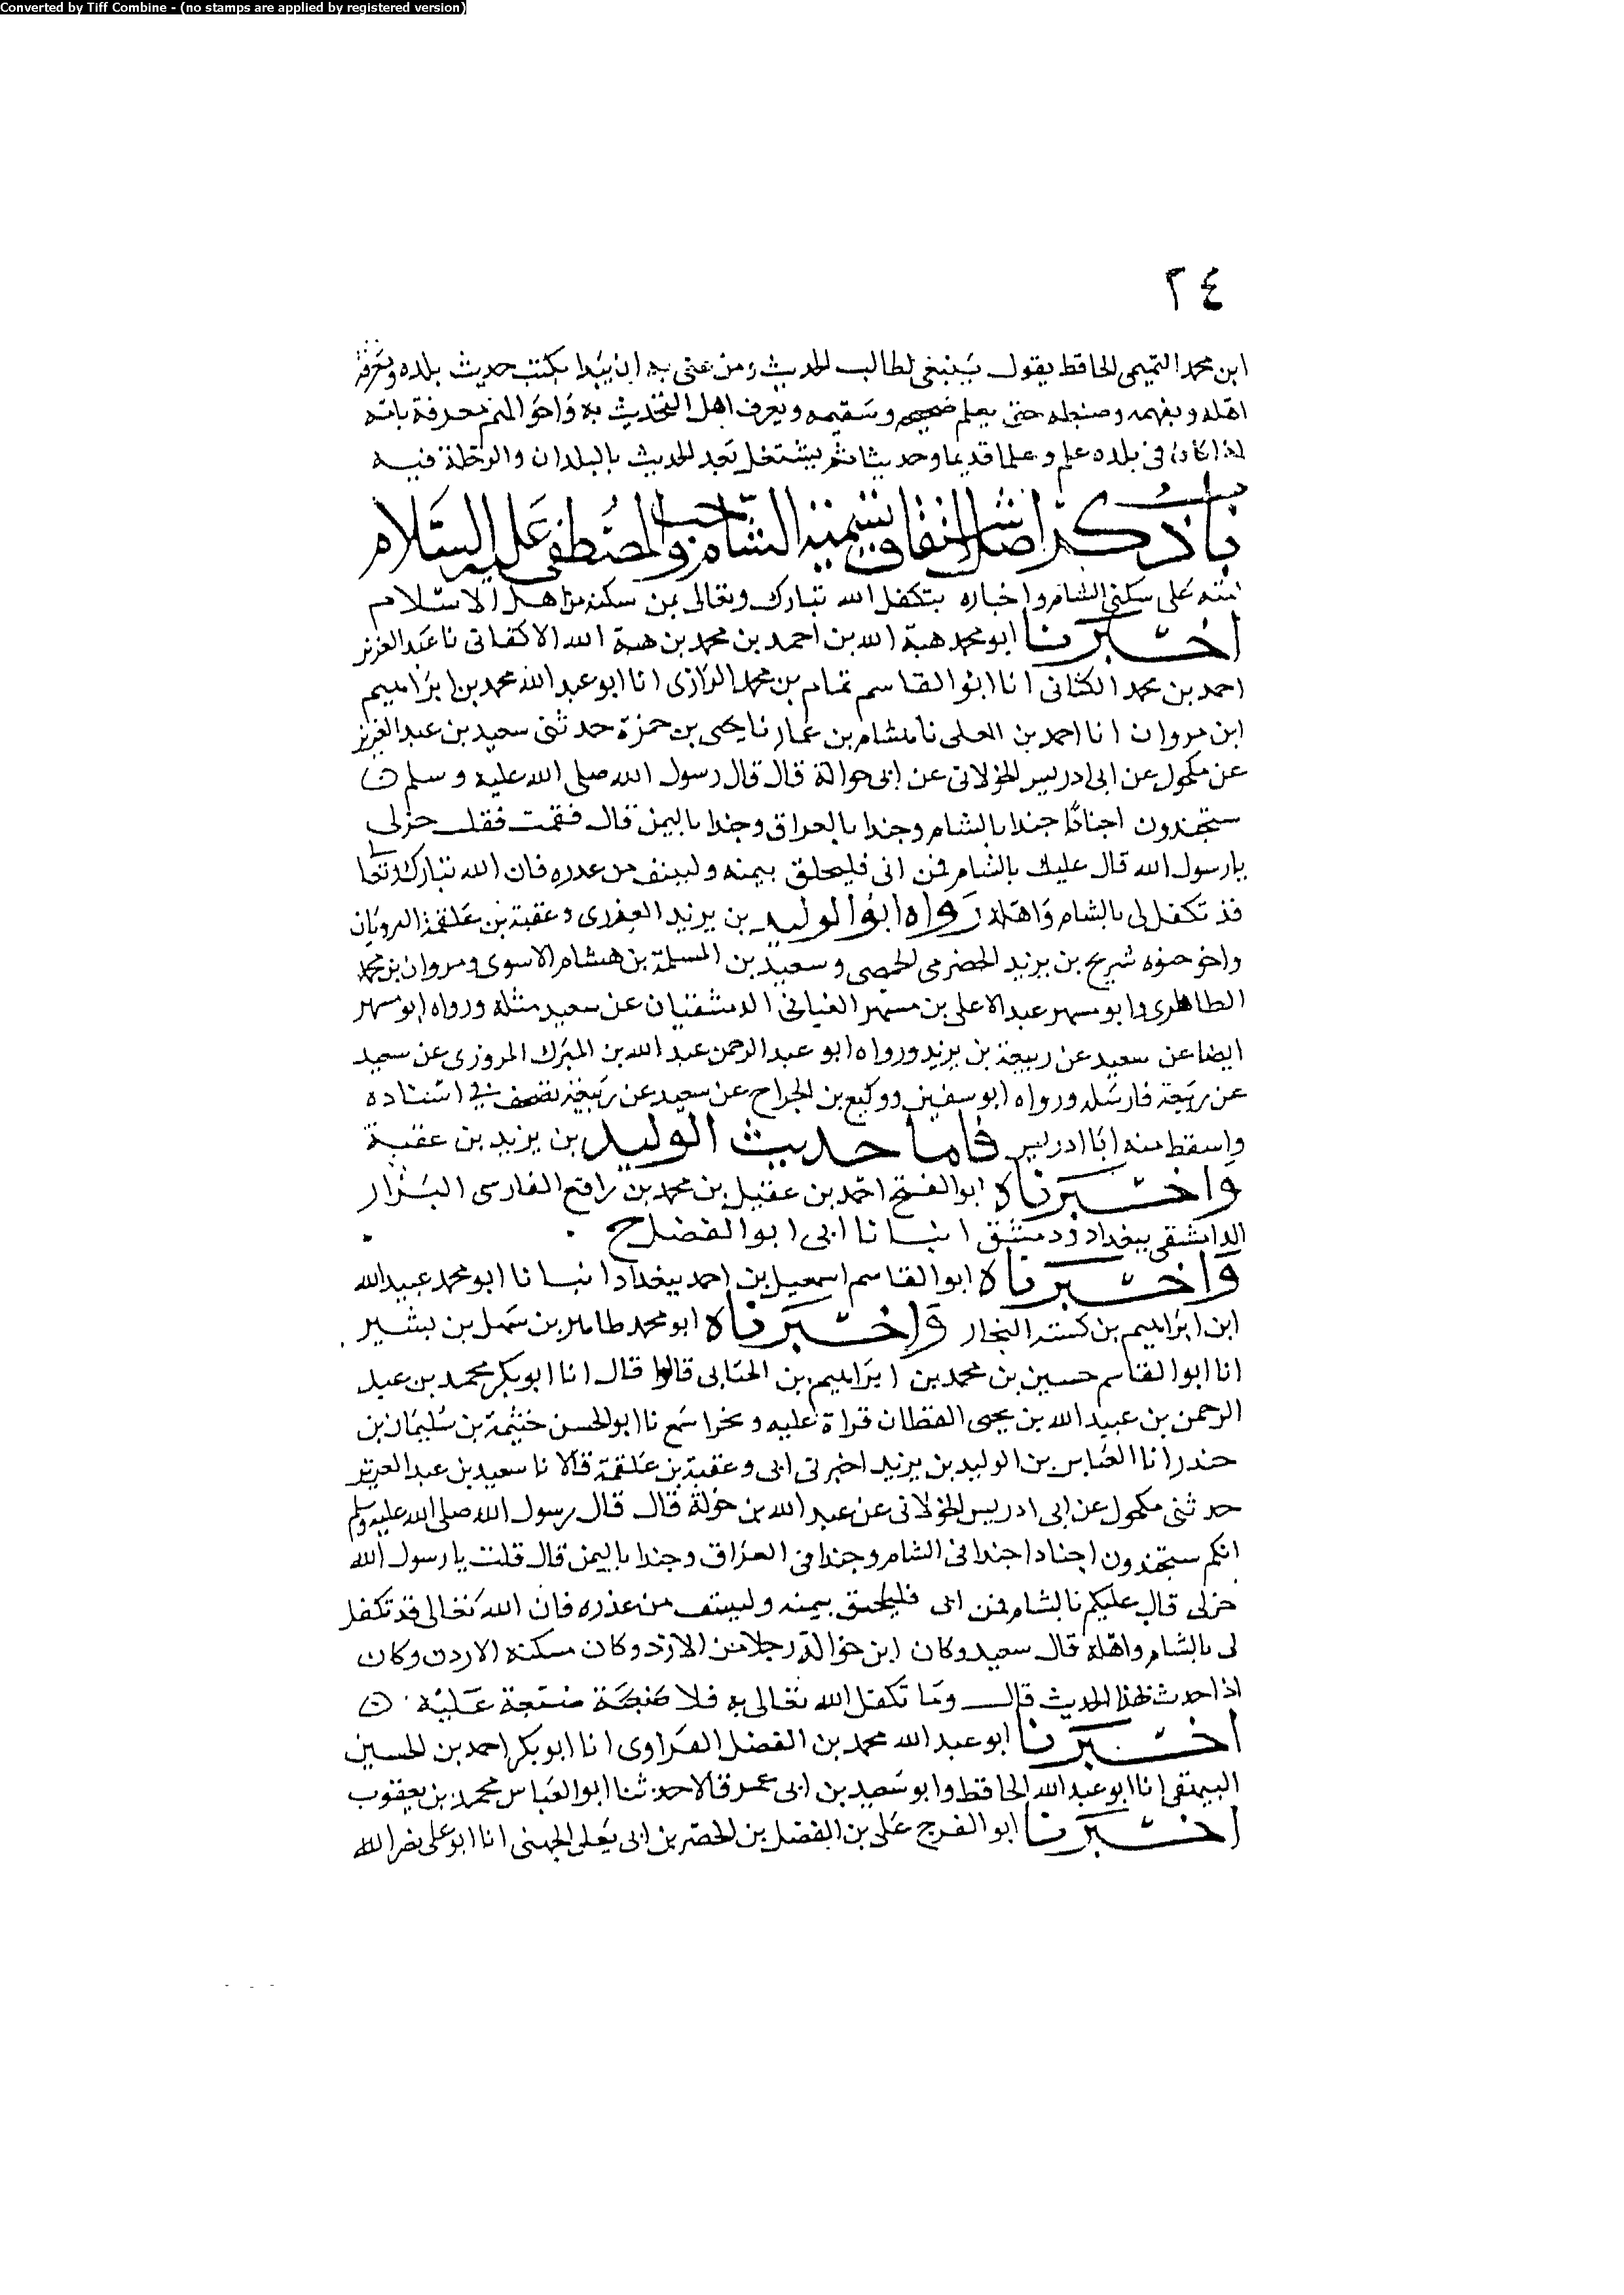 Converted by Tiff Combine - (no stamps are applied by registered version)
٢٤
ابن محمد التميمى الحافظ يقول ينبغى لطالب الحديث ومن عنى به ان يبدا بكتب حديث بلده ومعرفة
اهله وبفهمه وضبطه حتى يعلم صحيحه وسقيمه ويعرف اهل التحديث به واحوالهم معرفة
اذا كان فى بلده علم وعلما قديما وحديثا ثم يشتغل بعد الحديث بالبلدان والرحلة فيه
باب ذكر اصل اشتقاق تسمية الشام وحث المصطفى عليه السلام
امته على سكنى الشام واخباره بتكفل الله تبارك وتعالى بمن سكنه من اهل الاسلام
اخبرنا ابو محمد هبة الله بن احمد بن محمد بن هبة الله الاكفانى نا عبد العزيز
احمد بن محمد الكتانى انا ابو القاسم تمام بن محمد الرازى انا ابو عبد الله محمد بن ابراهيم
ابن مروان انا احمد بن المعلى نا هشام بن عمار نا يحيى بن حمزة حدثنى سعيد بن عبد العزيز
عن مكحول عن ابى ادريس الخولانى عن ابى حوالة قال قال رسول الله صلى الله عليه وسلم
ستجندون اجنادا جندا بالشام وجندا بالعراق وجندا باليمن قال فقمت فقلت خرلى
يا رسول الله قال عليك بالشام فمن ابى فليلحق بيمنه وليستق من غدره فان الله تبارك وتعا
قد تكفل لى بالشام واهله رواه ابو الوليد بن يزيد العذرى وعقبة بن علقمة البيروتيان
شريح بن يزيد الحضرمى الحمصى وسعيد بن المسلمة بن هشام الاموى ومروان بن محمد
الطاطرى وابو مسهر عبد الاعلى بن مسهر الغسانى الدمشقيان عن سعيد مثله ورواه ابو مسهر
ايضا عن سعيد عن ربيعة بن يزيد ورواه ابو عبد الرحمن عبد الله بن المبرك المروزى عن سعيد
عن ربيعة فارسله ورواه ابو سفين ووكيع بن الجراح عن سعيد عن ربيعة فى اسناده
واسقط منه ابا ادريس فاما حديث الوليد بن يزيد بن عقبة
واخبرناه ابو الفتح احمد بن عقيل بن محمد بن رافع الفارسى البزار
الدامشقى ببغداد ودمشق انبانا ابى ابو الفضل ح
واخبرناه ابو القاسم اسمعيل بن احمد ببغداد انبانا ابو محمد عبيد الله
ابن ابراهيم بن كبيبة النجار واخبرناه ابو محمد طاهر بن سهل بن بشير
انا ابو القاسم حسين بن محمد بن ابراهيم بن الحنابى قالوا قال انا ابو بكر محمد بن عبد
الرحمن بن عبيد الله بن يحيى القطان قراة عليه ونحن اسمع نا ابو الحسن خيثمة بن سليمان بن
حيدر انا العباس بن الوليد بن يزيد اخبرنى ابى وعقبة بن علقمة قالا نا سعيد بن عبد العزيز
حدثنى مكحول عن ابى ادريس الخولانى عن عبد الله بن حولة قال قال رسول الله صلى الله عليه وسلم
انكم ستجندون اجنادا جندا فى الشام وجندا فى العراق وجندا باليمن قال قلت يا رسول الله
خرلى قال عليكم بالشام فمن ابى فليلحق بيمنه وليستق من غدره فان الله تعالى قد تكفل
لى بالشام واهله قال سعيد وكان ابن حوالة رجلا من الازد وكان مسكنه الاردن وكان
اذا حدث بهذا الحديث قال وما تكفل الله تعالى به فلا ضيعة عليه
اخبرنا ابو عبد الله محمد بن الفضل الفراوى انا ابو بكر احمد بن الحسين
البيهقى انا ابو عبد الله الحافظ وابو سعيد بن ابى عمرو قالا حدثنا ابو العباس محمد بن يعقوب
اخبرنا ابو الفرج على بن الفضل بن الحضر بن ابى يعلى الجهنى انا ابو على نصر الله